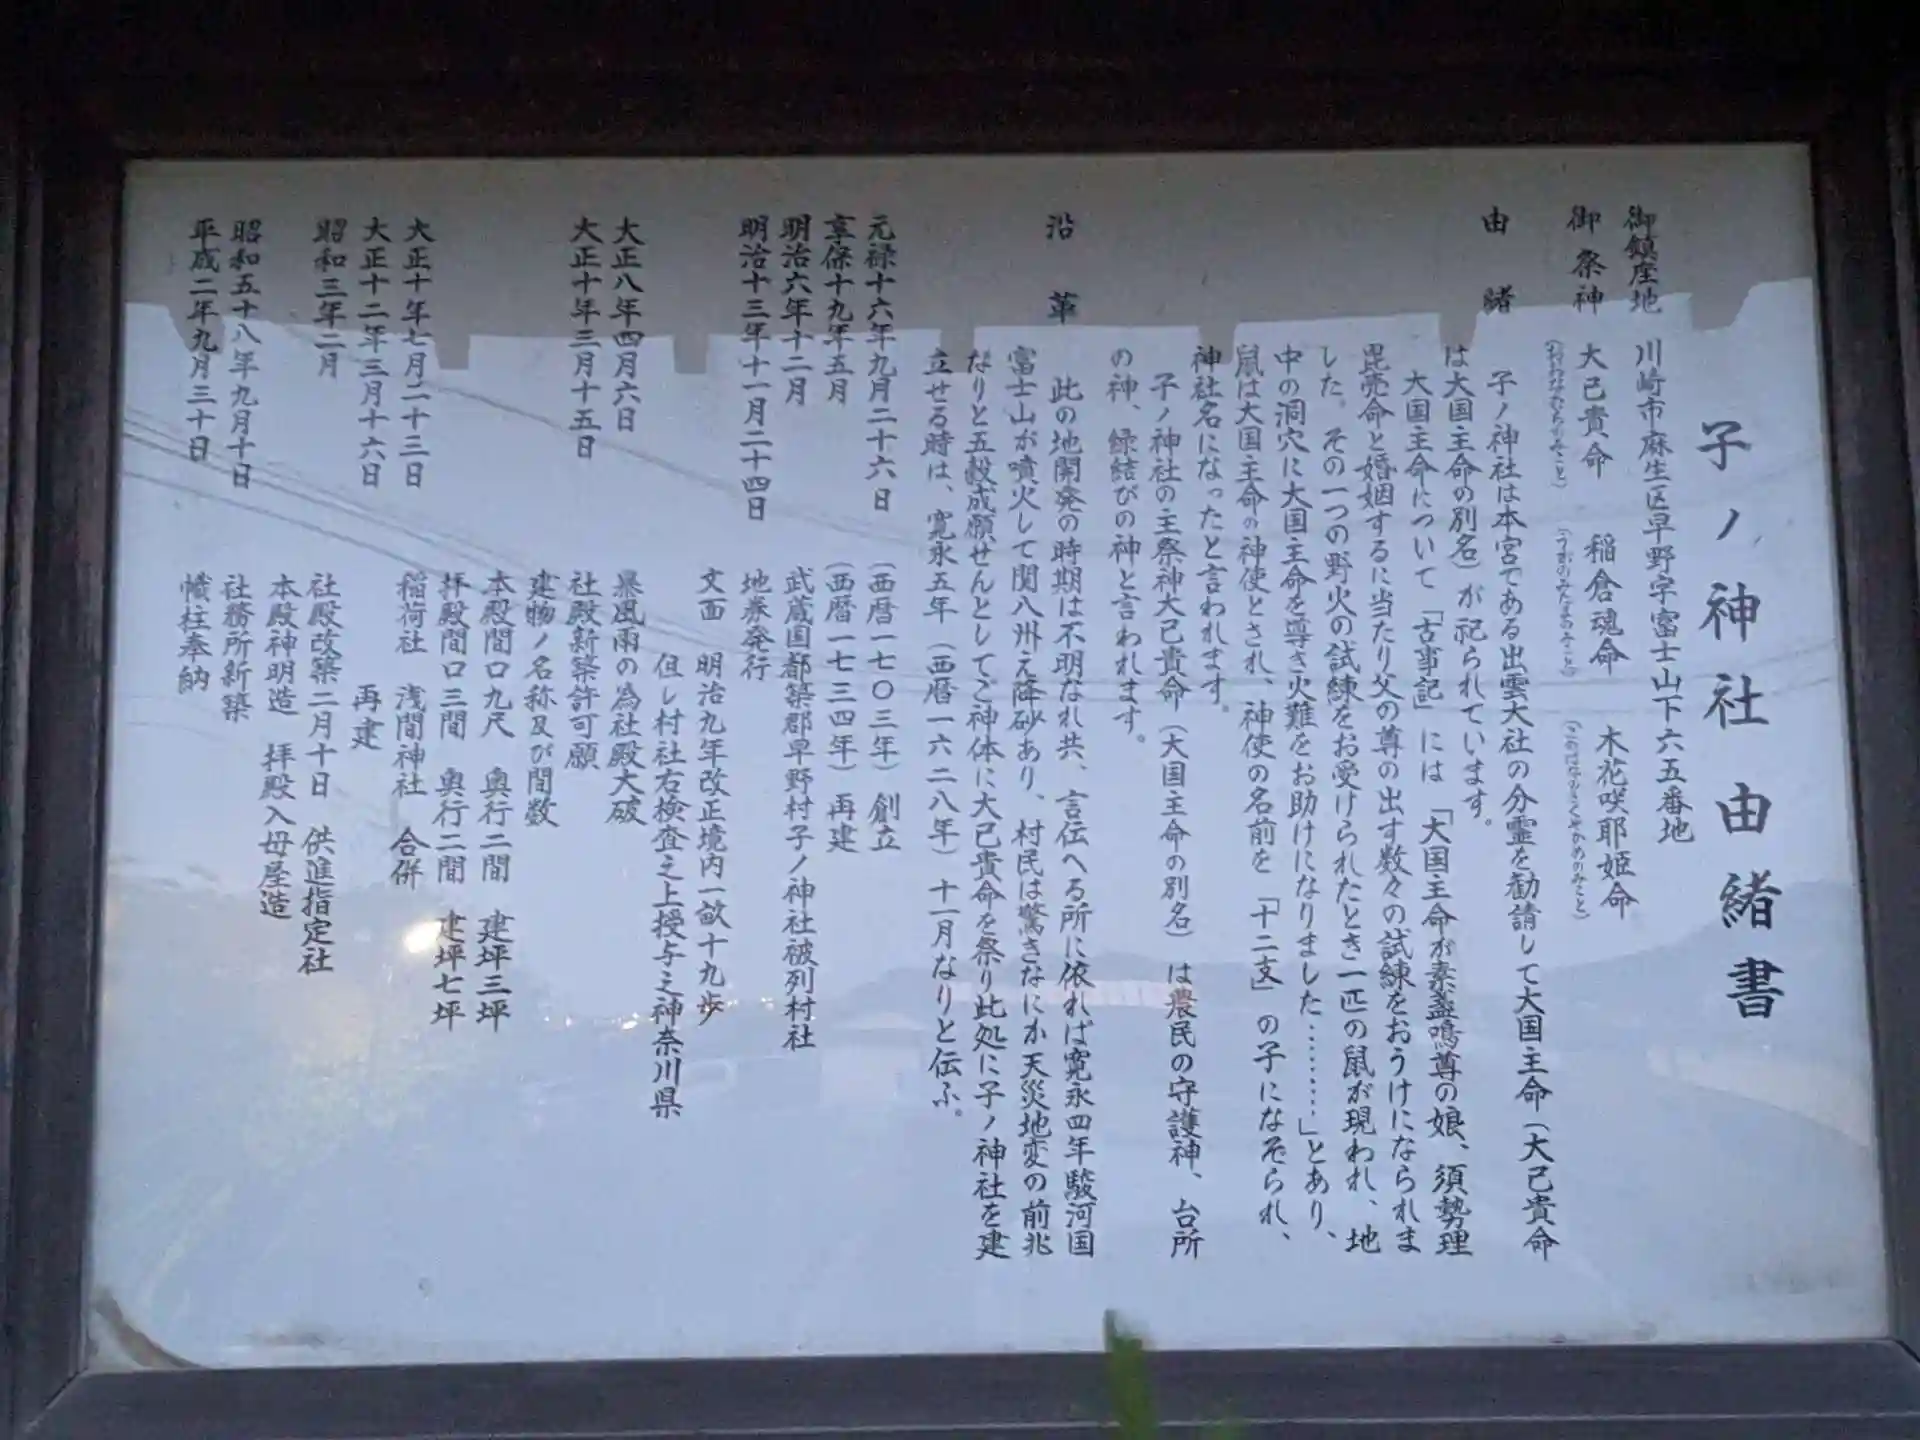 子ノ神社由緒書
御鎮座地 川崎市麻生区早野字富士山下六五番地
御祭神 大己貴命 稲倉魂命 木花咲耶姫命
(おおなむちのみこと) (うがのみたまのみこと) (このはなのさくやひめのみこと)
由緒
子ノ神社は本宮である出雲大社の分霊を勧請して大国主命(大己貴命
は大国主命の別名)が祀られています。
大国主命について「古事記」には「大国主命が素盞鳴尊の娘、須勢理
毘売命と婚姻するに当たり父の尊の出す数々の試練をおうけになられま
した。その一つの野火の試練をお受けられたとき一匹の鼠が現われ、地
中の洞穴に大国主命を導き火難をお助けになりました………」とあり、
鼠は大国主命の神使とされ、神使の名前を「十二支」の子になぞられ、
神社名になったと言われます。
子ノ神社の主祭神大己貴命(大国主命の別名)は農民の守護神、台所
の神、縁結びの神と言われます。
沿革
此の地開発の時期は不明なれ共、言伝へる所に依れば寛永四年駿河国
富士山が噴火して関八州え降砂あり、村民は驚きなにか天災地変の前兆
なりと五穀成願せんとしてご神体に大己貴命を祭り此処に子ノ神社を建
立せる時は、寛永五年(西暦一六二八年)十一月なりと伝ふ。
元禄十六年九月二十六日 (西暦一七〇三年) 創立
享保十九年五月 (西暦一七三四年) 再建
明治六年十二月 武蔵国都築郡早野村子ノ神社被列村社
明治十三年十一月二十四日 地券発行
文面 明治九年改正境内一畝十九歩
但し村社右検査之上授与之神奈川県
大正八年四月六日 暴風雨の為社殿大破
大正十年三月十五日 社殿新築許可願
建物ノ名称及び間数
本殿間口九尺 奥行二間 建坪三坪
拝殿間口三間 奥行二間 建坪七坪
大正十年七月二十三日 稲荷社 浅間神社 合併
大正十二年三月十六日 再建
昭和三年二月 社殿改築二月十日 供進指定社
本殿神明造 拝殿入母屋造
昭和五十八年九月十日 社務所新築
平成二年九月三十日 幟柱奉納